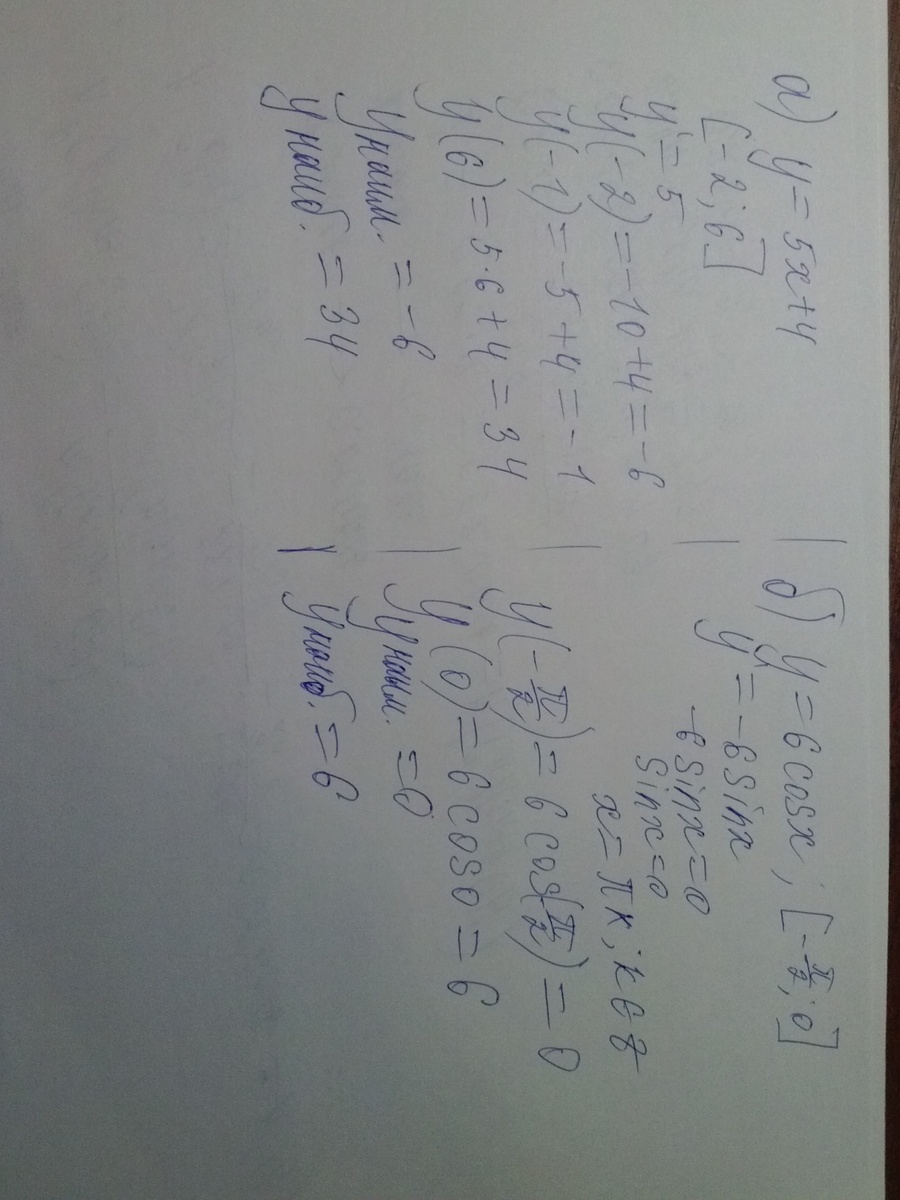 а) y = 5x+4
[-2; 6]
y' = 5
y(-2) = -10+4 = -6
y(-1) = -5+4 = -1
y(6) = 5·6+4 = 34
y наим. = -6
y наиб. = 34
б) y = 6 cosx; [-π/2; 0]
y' = -6sinx
-6sinx=0
sinx=0
x = πк; к∈Z
y(-π/2) = 6 cos(π/2) = 0
y(0) = 6 cos0 = 6
y наим. = 0
y наиб. = 6